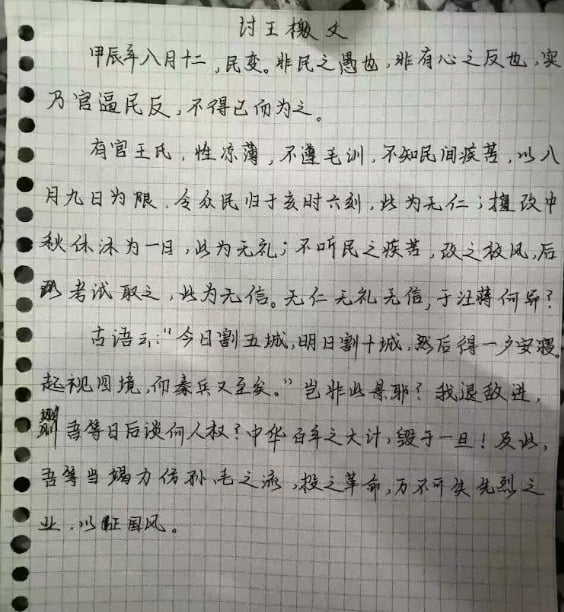 讨王檄文
甲辰年八月十二，民变。非民之愚也，非有心之反也，实
乃官逼民反，不得已而为之。
有官王氏，性凉薄，不遵毛训，不知民间疾苦，以八
月九日为限，令众民归于亥时六刻，此为无仁；擅改中
秋休沐为一日，此为无礼；不听民之疾苦，改之校风，后
考试取之，此为无信。无仁无礼无信，于汪蒋何异？
古语云："今日割五城，明日割十城，然后得一夕安寝。
起视四境，而秦兵又至矣。"岂非此景耶？我退敌进，
则吾等日后谈何人权？中华百年之大计，毁于一旦！及此，
吾等当竭力仿孙毛之派，投之革命，万不可失先烈之
业，以正国风。